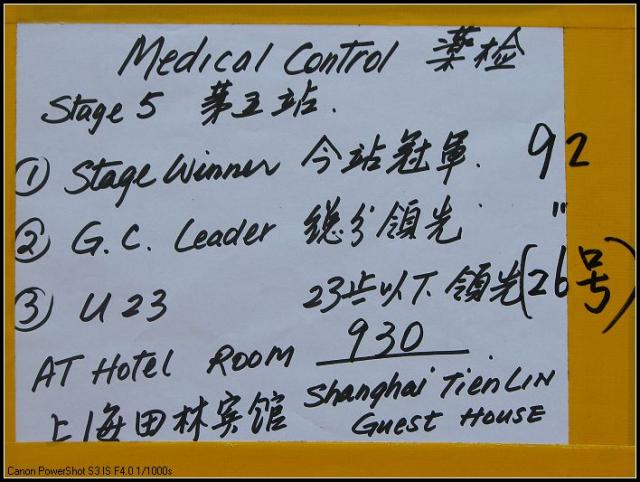 Medical Control 薬检
Stage 5 第五站.
① Stage Winner 今站冠軍. 92
② G.C. Leader 総分領先 "
③ U 23 23岁以下領先 (26号)
AT Hotel ROOM 930
上海田林宾馆 Shanghai TienLIN Guest HousE
Canon PowerShot S3 IS F4.0 1/1000s